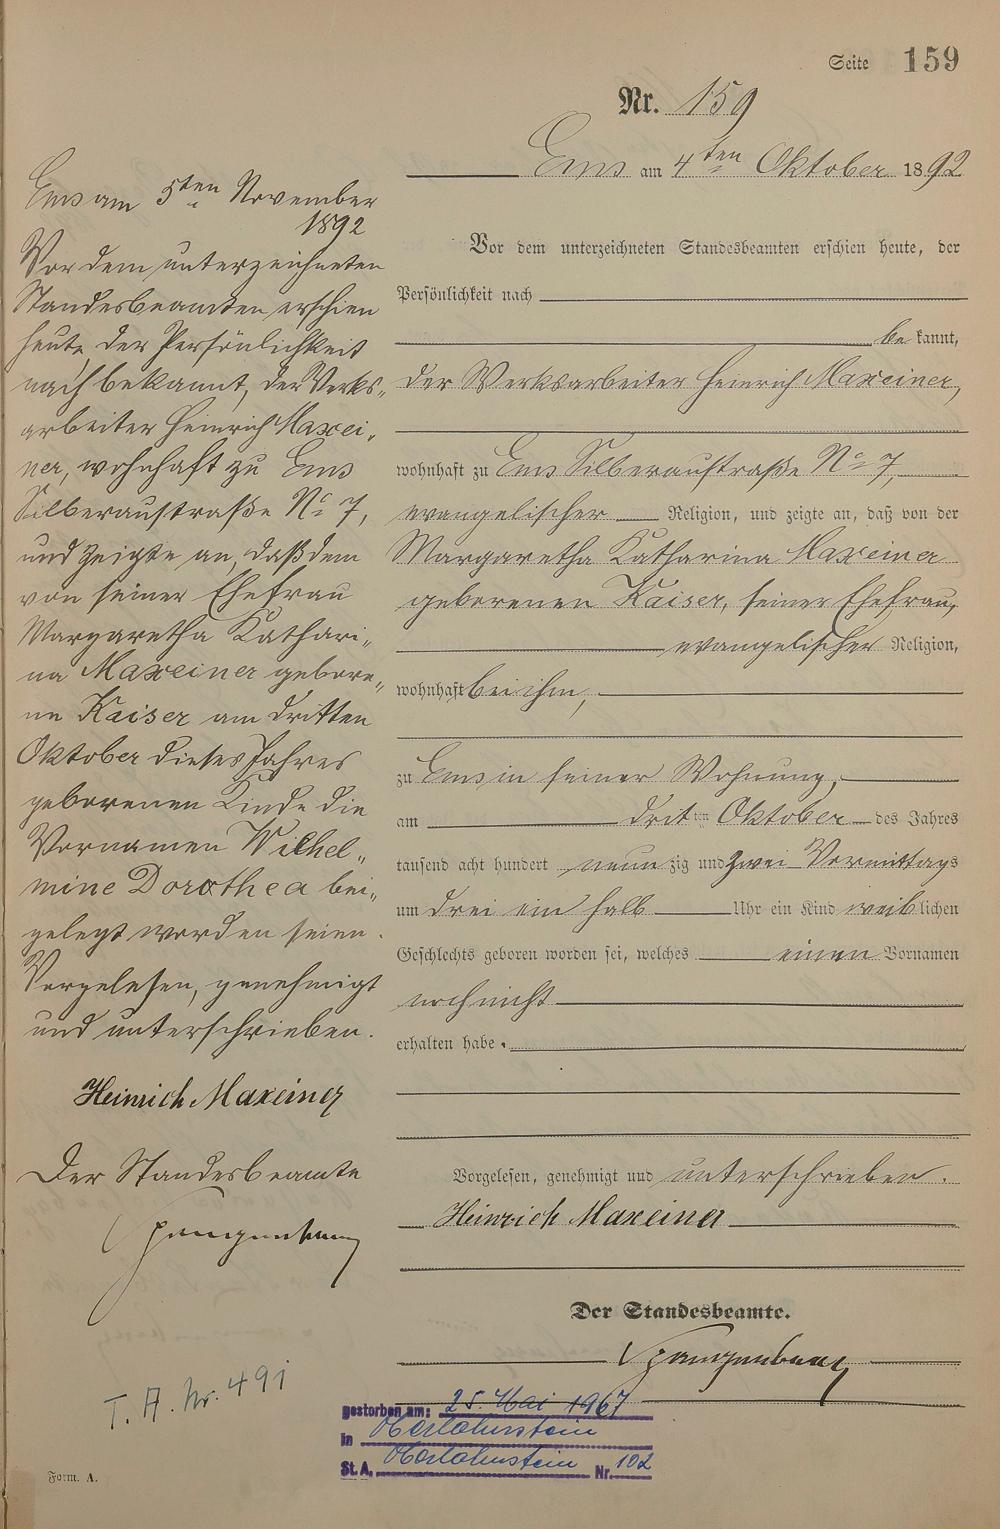 Seite 159
Nr. 159
Ems am 4ten Oktober 1892
Vor dem unterzeichneten Standesbeamten erschien heute, der
Persönlichkeit nach
bekannt,
der Werksarbeiter Heinrich Maxeiner,
wohnhaft zu Ems Silberaustraße No 7,
evangelischer Religion, und zeigte an, daß von der
Margaretha Katharina Maxeiner
geborenen Kaiser, seiner Ehefrau,
evangelischer Religion,
wohnhaft bei ihm,
zu Ems in seiner Wohnung,
am dritten Oktober des Jahres
tausend acht hundert neunzig und zwei Vormittags
um drei ein halb Uhr ein Kind weiblichen
Geschlechts geboren worden sei, welches einen Vornamen
noch nicht
erhalten habe.
Vorgelesen, genehmigt und unterschrieben.
Heinrich Maxeiner
Der Standesbeamte.
Ems am 5ten November
1892
Vor dem unterzeichneten
Standesbeamten erschien
heute der Persönlichkeit
nach bekannt, der Werks-
arbeiter Heinrich Maxei-
ner, wohnhaft zu Ems
Silberaustraße No 7,
und zeigte an, daß dem
von seiner Ehefrau
Margaretha Kathari-
na Maxeiner gebore-
ne Kaiser am dritten
Oktober dieses Jahres
geborenen Kinde die
Vornamen Wilhel-
mine Dorothea bei-
gelegt worden seien.
Vorgelesen, genehmigt
und unterschrieben.
Heinrich Maxeiner
Der Standesbeamte
T. A. Nr. 491
gestorben am: 25. Mai 1967
in Oberlahnstein
St.A. Oberlahnstein Nr. 102
Form. A.